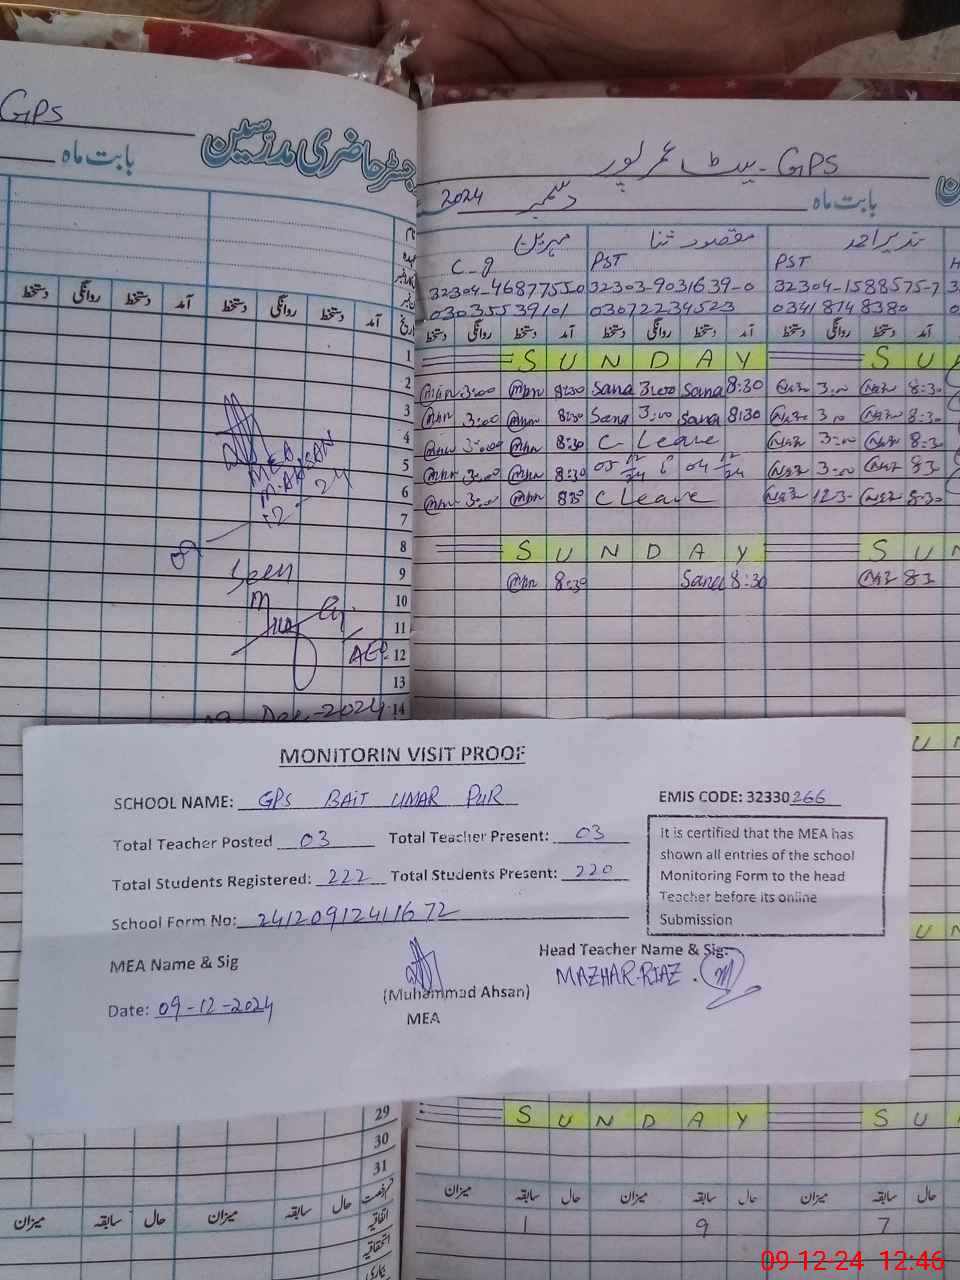 GPS
رجسٹر حاضری مدرسین
بابت ماہ
GPS - بیٹ عمر پور
بابت ماہ دسمبر 2024
مہرین مقصود ثنا نذیر احمد
C-g PST PST
32304-4687755-0 32303-9031639-0 32304-1588575-7
03035539101 03072234523 03418748380
دستخط روانگی دستخط آمد دستخط روانگی دستخط آمد
دستخط روانگی دستخط آمد دستخط روانگی دستخط آمد دستخط روانگی دستخط آمد
1 SUNDAY SU
2 3:00 8:30 Sana 3:00 Sana 8:30 Naz 3:00 Naz 8:30
3 3:00 8:30 Sana 3:00 Sana 8:30 Naz 3:00 Naz 8:30
4 3:00 8:30 C Leave Naz 3:00 Naz 8:30
5 3:00 8:30 Naz 3:00 Naz 83
6 3:00 830 C Leave Naz 123- Naz 8:30
7
8 SUNDAY SUN
9 8:30 Sana 8:30 Naz 83
10
11
12
13
14
MEA
M. AHSAN
12-24
Seen
AEO
09-Dec-2024
UN
MONITORIN VISIT PROOF
SCHOOL NAME: GPS BAIT UMAR PUR EMIS CODE: 32330266
Total Teacher Posted 03 Total Teacher Present: 03
Total Students Registered: 222 Total Students Present: 220
School Form No: 241209124111672
It is certified that the MEA has
shown all entries of the school
Monitoring Form to the head
Teacher before its online
Submission
MEA Name & Sig
Head Teacher Name & Sig:
MAZHAR-RIAZ.
(Muhammad Ahsan)
MEA
Date: 09-12-2024
UN
29 SUNDAY SU
30
31
میزان سابقہ حال میزان سابقہ حال
میزان سابقہ حال میزان سابقہ حال میزان سابقہ حال
اتفاقیہ 1 9 7
استحقاقیہ
بیماری
09-12-24 12:46